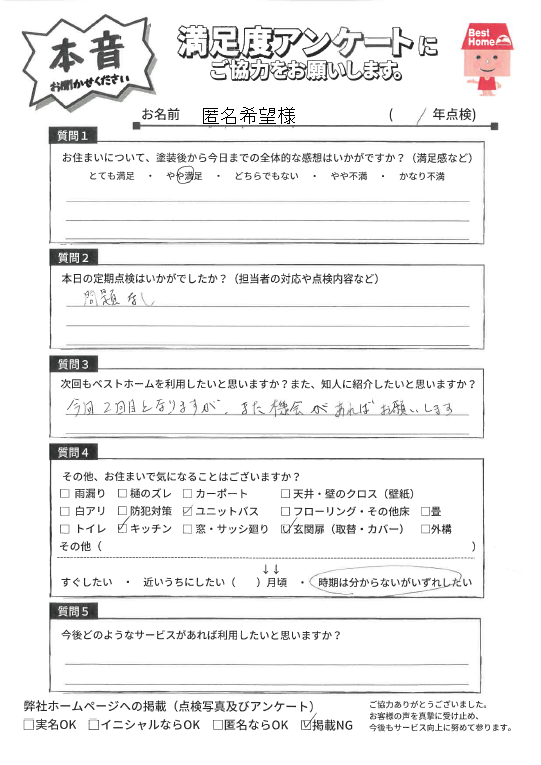 本音
お聞かせください
満足度アンケートに
ご協力をお願いします。
Best Home
お名前 匿名希望様 ( / 年点検)
質問1
お住まいについて、塗装後から今日までの全体的な感想はいかがですか？（満足感など）
とても満足 ・ やや満足 ・ どちらでもない ・ やや不満 ・ かなり不満
質問2
本日の定期点検はいかがでしたか？（担当者の対応や点検内容など）
問題なし
質問3
次回もベストホームを利用したいと思いますか？また、知人に紹介したいと思いますか？
今回2回目となりますが、また機会があればお願いします
質問4
その他、お住まいで気になることはございますか？
□ 雨漏り □ 樋のズレ □ カーポート □ 天井・壁のクロス（壁紙）
□ 白アリ □ 防犯対策 ☑ ユニットバス □ フローリング・その他床 □畳
□ トイレ ☑ キッチン □ 窓・サッシ廻り ☑ 玄関扉（取替・カバー） □外構
その他（ ）
↓↓
すぐしたい ・ 近いうちにしたい（ ）月頃 ・ 時期は分からないがいずれしたい
質問5
今後どのようなサービスがあれば利用したいと思いますか？
弊社ホームページへの掲載（点検写真及びアンケート）
□実名OK □イニシャルならOK □匿名ならOK ☑掲載NG
ご協力ありがとうございました。
お客様の声を真摯に受け止め、
今後もサービス向上に努めて参ります。